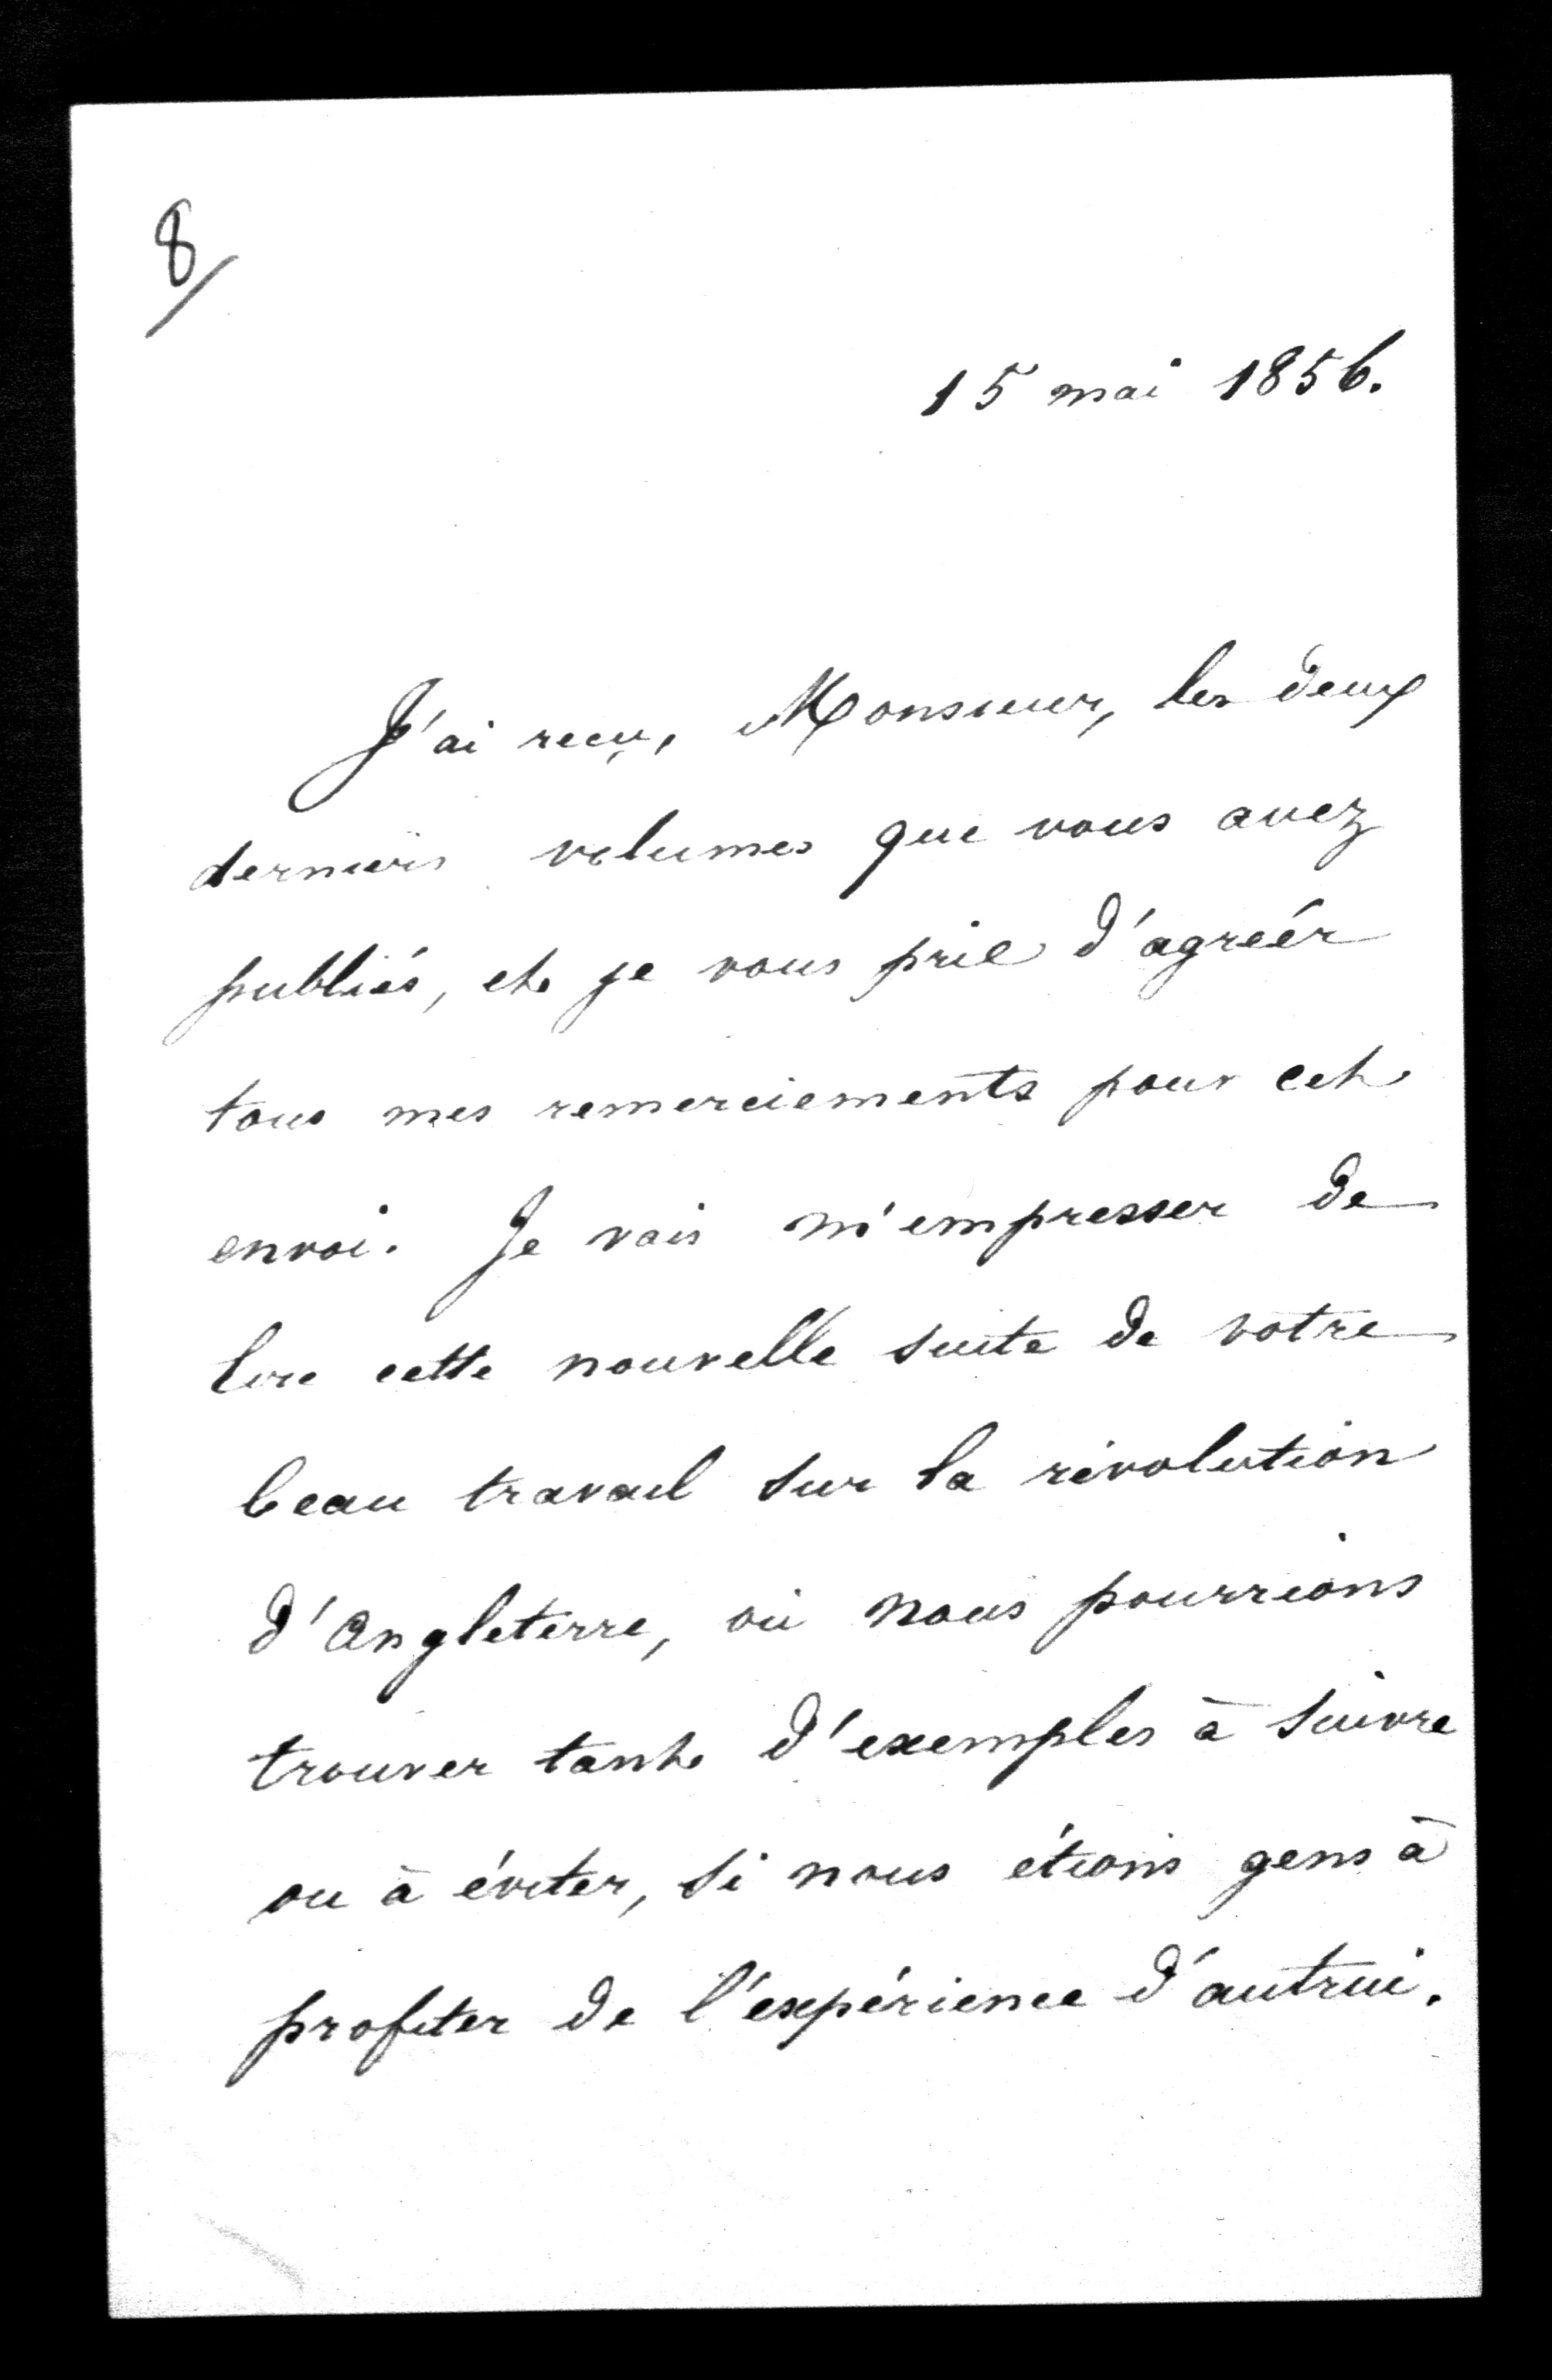 8/
15 mai 1856.
J'ai reçu, Monsieur, les deux
derniers volumes que vous avez
publiés, et je vous prie d'agréér
tous mes remerciements pour cet
envoi. Je vais m'empresser de
lire cette nouvelle suite de votre
beau travail sur la révolution
d'Angleterre, où nous pourrions
trouver tant d'exemples à suivre
ou à éviter, si nous étions gens à
profiter de l'expérience d'autrui.